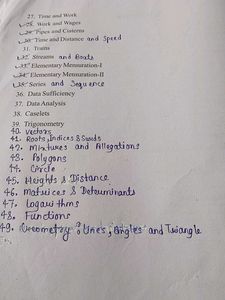 27. Time and Work
28. Work and Wages
29. Pipes and Cisterns
30. Time and Distance and Speed
31. Trains
32. Streams and Boats
33. Elementary Mensuration-I
34. Elementary Mensuration-II
35. Series and Sequence
36. Data Sufficiency
37. Data Analysis
38. Caselets
39. Trigonometry
40. Vectors
41. Roots, Indices & Surds
42. Mixtures and Allegations
43. Polygons
44. Circle
45. Heights & Distance
46. Matrices & Determinants
47. Logarithms
48. Functions
49. Geometry : Lines, Angles and Triangle